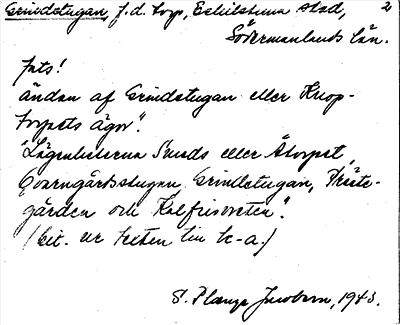 Grindstugan, f.d. torp, Eskilstuna stad, 2
Södermanlands län.
Jats!
ändan af Grindstugan eller Knop-
torpets ägor".
"Lägenheterna Sunds eller Åtorpet,
Qvarngärdsstugan, Grindstugan, Präste-
gärden och
(cit. ur texten till k-a.)
S. Plange Jacobson, 1943.